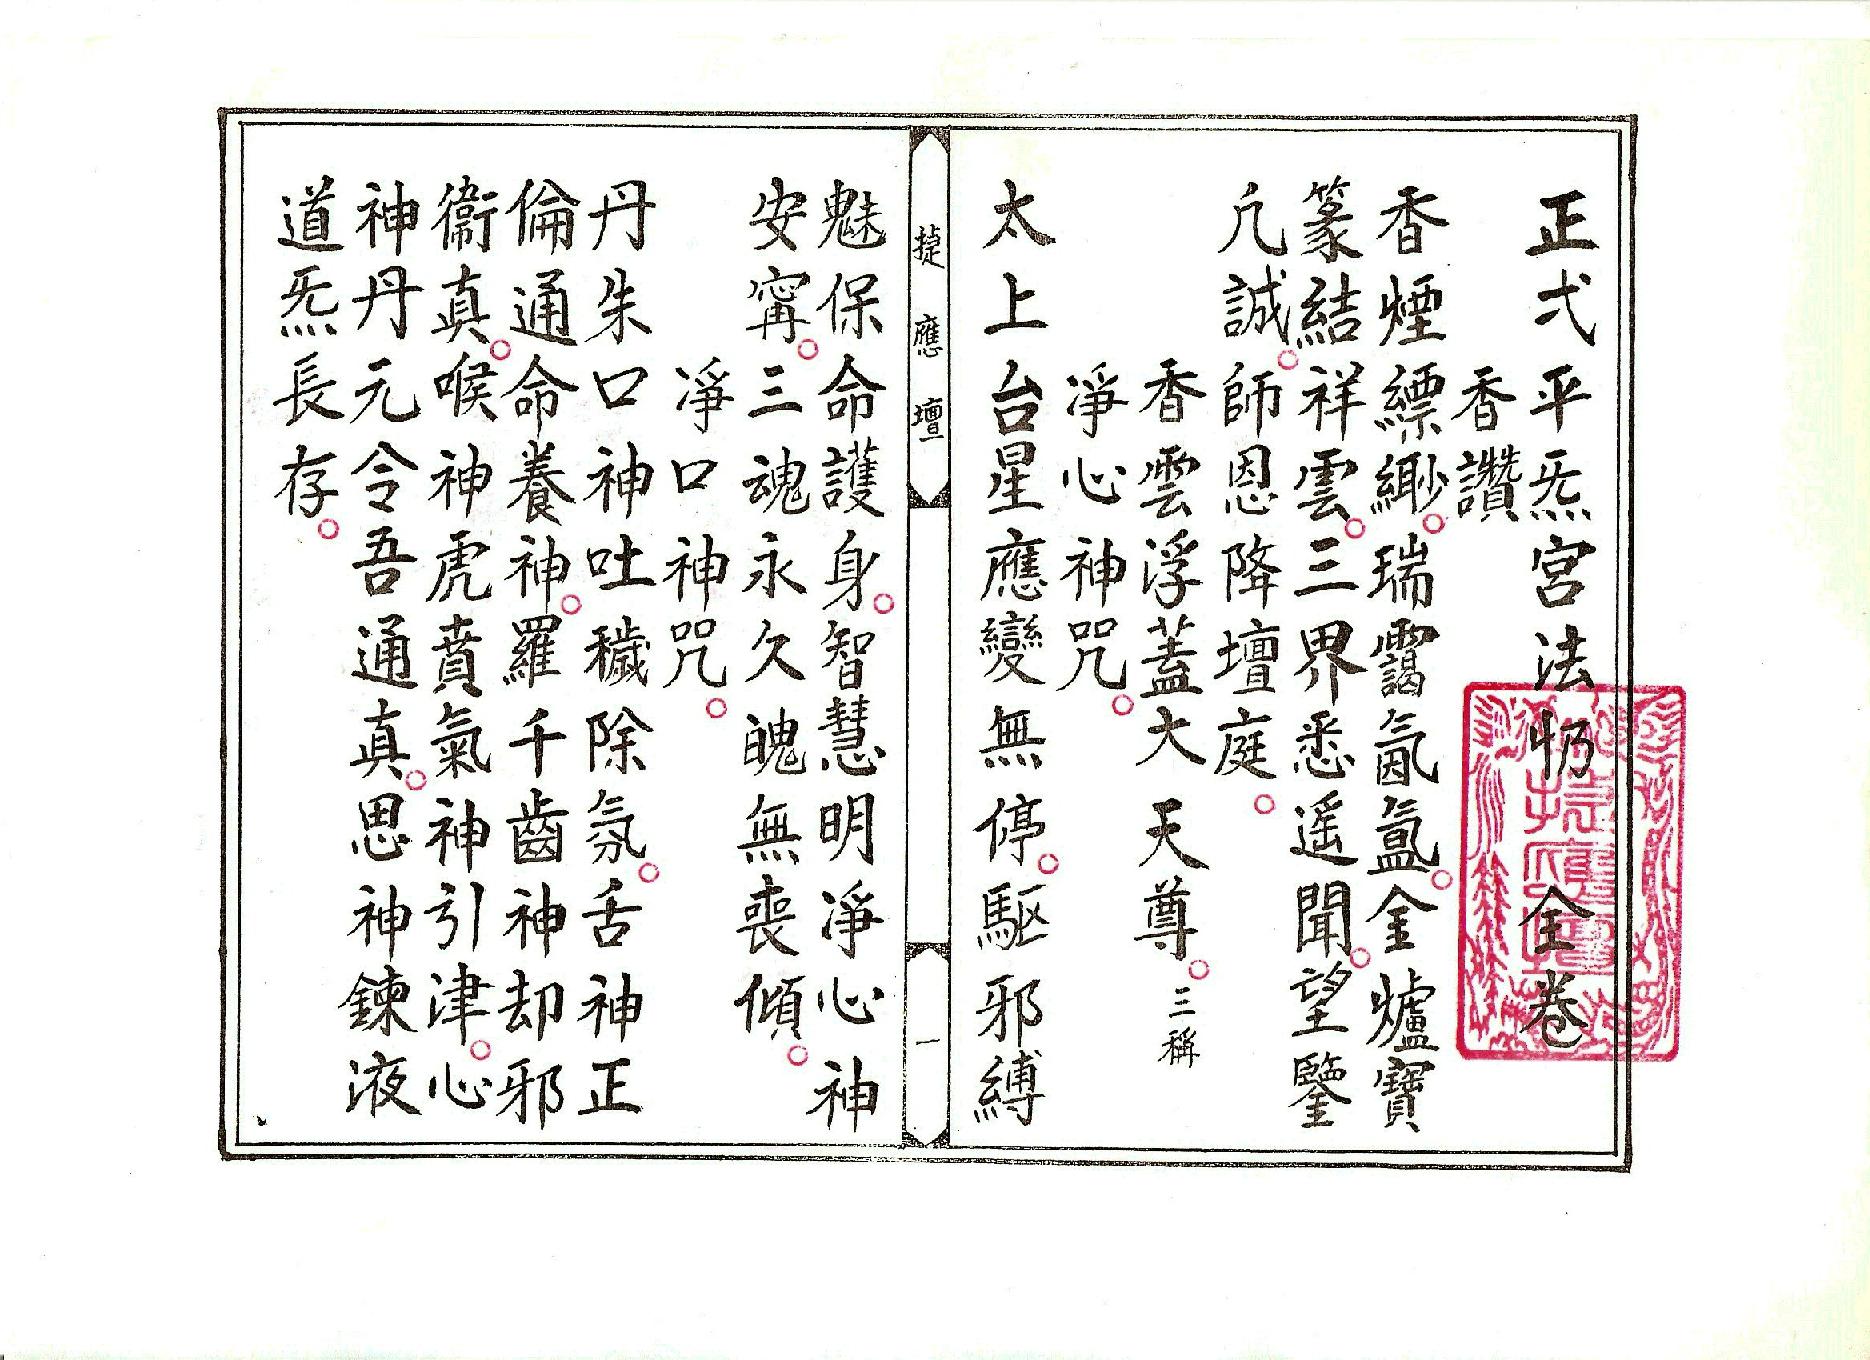 正弌平炁宮法 全卷
香讚
香煙縹緲。瑞靄氤氳。金爐寶
篆結祥雲。三界悉遙聞。望鑒
凢誠。師恩降壇庭。
香雲浮蓋大天尊。三稱
淨心神咒。
太上台星應變無停。驅邪縛
捷應壇 一
魅保命護身。智慧明淨心神
安寧。三魂永久魄無喪傾。
淨口神咒。
丹朱口神吐穢除氛。舌神正
倫通命養神。羅千齒神却邪
衞真。喉神虎賁氣神引津。心
神丹元令吾通真。思神鍊液
道炁長存。